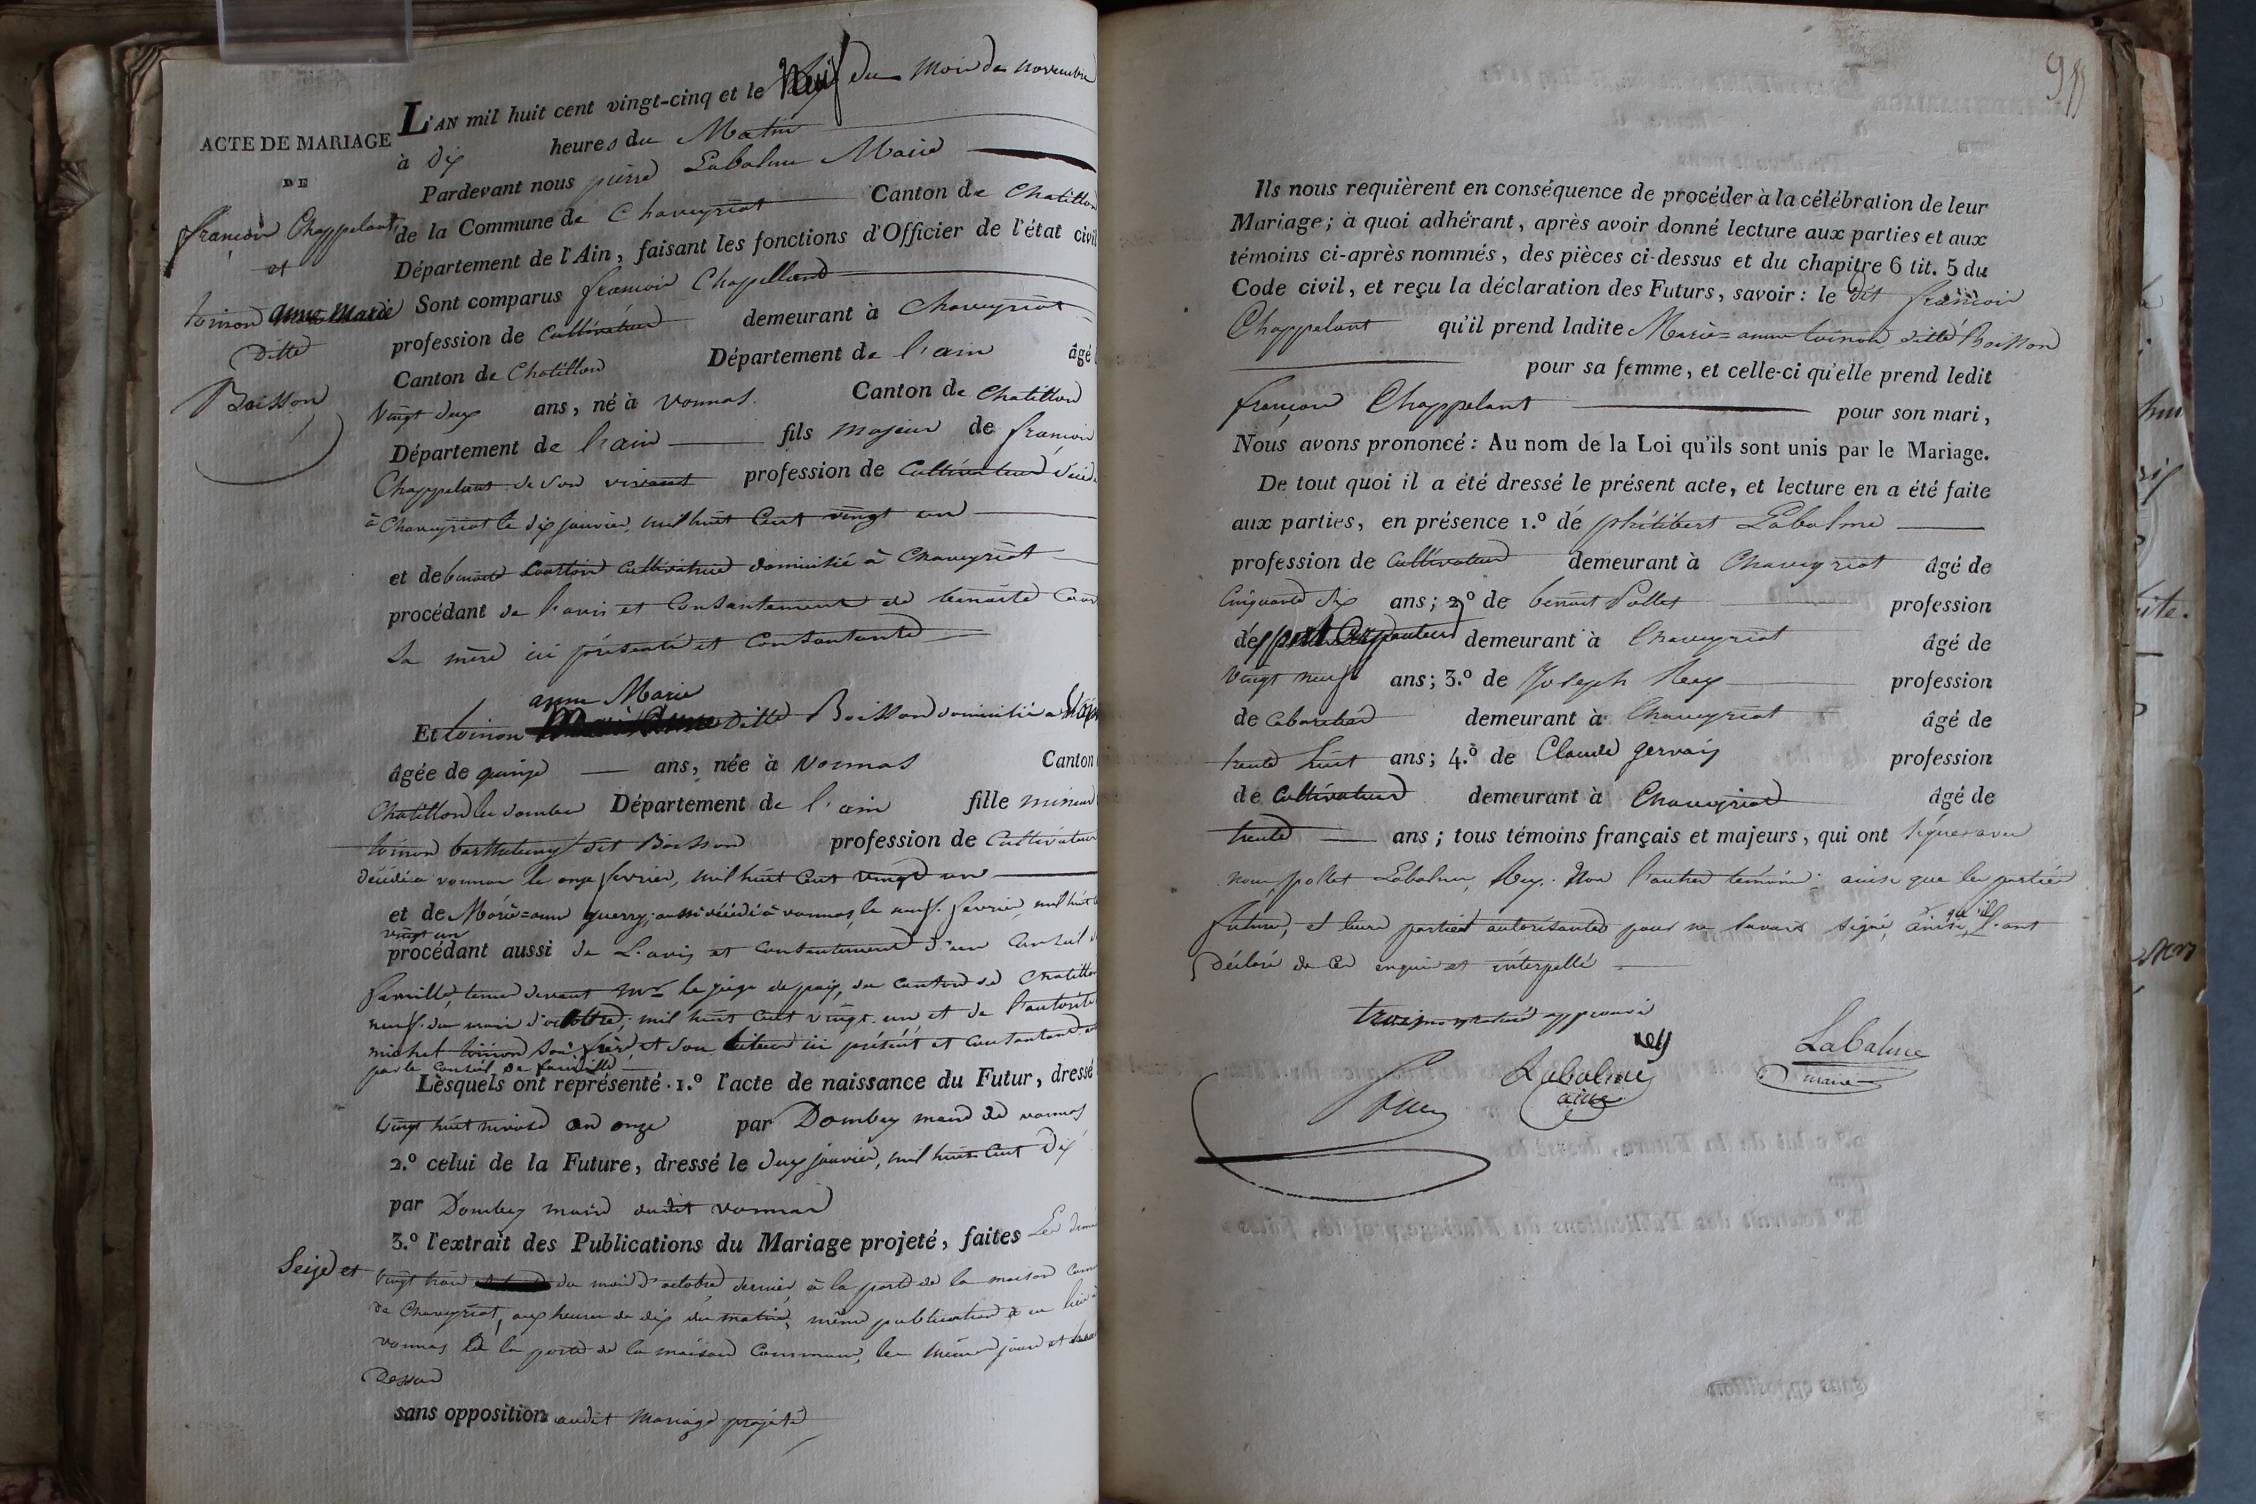 ACTE DE MARIAGE
DE
françois Chappelant
et
toinon anne Marie
ditte
Boisson
L'AN mil huit cent vingt-cinq et le Neuf du mois de novembre
à dix heures du Matin
Pardevant nous pierre Labalme Maire
de la Commune de Chaveyriat Canton de Chatillon
Département de l'Ain, faisant les fonctions d'Officier de l'état civil
Sont comparus françois Chapelland
profession de Cultivateur demeurant à Chaveyriat
Canton de Chatillon Département de l'ain âgé
vingt deux ans, né à vonnas Canton de Chatillon
Département de l'ain fils majeur de françois
Chappelant de son vivant profession de Cultivateur décédé
à Chaveyriat le dix janvier, mil huit Cent vingt un
et de benoite Cultivatrice domicilié à Chaveyriat
procédant de l'avis et Consantement de benoite
Sa mère ici présente et Consantante
anne Marie
Et toinon ditte Boisson domicilié a
âgée de quinze ans, née à Vonnas Canton
Chatillon les dombes Département de l'ain fille mineur
toinon barthelemy dit Boisson profession de Cultivateur
décédé a vonnas le onze fevrier, mil huit Cent vingt un
et de Marie=anne guerry, aussi décédé à vonnas, le neuf fevrier, mil huit
vingt un
procédant aussi de L'avis et consantement d'un Conseil
famille, tenu devant Mr le juge de paix, du canton de Chatillon
neuf du mois d'octobre, mil huit cent vingt un et de l'autorité
michel toinon son frère et son tuteur ici présent et consantant
par le Conseil de famille
Lesquels ont représenté 1.º l'acte de naissance du Futur, dressé
vingt huit nivose an onze par Dombey maire de vonnas
2.º celui de la Future, dressé le deux janvier, mil huit Cent dix
par Dombey maire dudit vonnas
3.º l'extrait des Publications du Mariage projeté, faites Les
Seize et
vingt trois du mois d'octobre dernier à la porte de la maison
de Chaveyriat, aux heures de dix du matin, même publication a eu lieu
vonnas à la porte de la maison Commune, les mêmes jours et
dessus
sans opposition audit Mariage projeté
Ils nous requièrent en conséquence de procéder à la célébration de leur
Mariage; à quoi adhérant, après avoir donné lecture aux parties et aux
témoins ci-après nommés, des pièces ci-dessus et du chapitre 6 tit. 5 du
Code civil, et reçu la déclaration des Futurs, savoir: le dit françois
Chappelant qu'il prend ladite Marie=anne toinon ditte Boisson
pour sa femme, et celle-ci qu'elle prend ledit
françois Chappelant pour son mari,
Nous avons prononcé: Au nom de la Loi qu'ils sont unis par le Mariage.
De tout quoi il a été dressé le présent acte, et lecture en a été faite
aux parties, en présence 1.º de philibert Labalme
profession de Cultivateur demeurant à Chaveyriat âgé de
Cinquante six ans; 2º de benoit Pollet profession
de demeurant à Chaveyriat âgé de
vingt neuf ans; 3.º de Joseph Rey profession
de Cabaretier demeurant à Chaveyriat âgé de
trente huit ans; 4.º de Claude gervais profession
de Cultivateur demeurant à Chaveyriat âgé de
trente ans; tous témoins français et majeurs, qui ont signé avec
nous, pollet Labalme, Rey. Non l'autre témoin ainsi que les parties
future, et leurs parties autorisantes pour ne savoir signé, ainsi qu'il l'ont
déclaré de Ce enquis et interpellé
trois mots approuvé
rey
Labalme
ainé
Labalme
maire